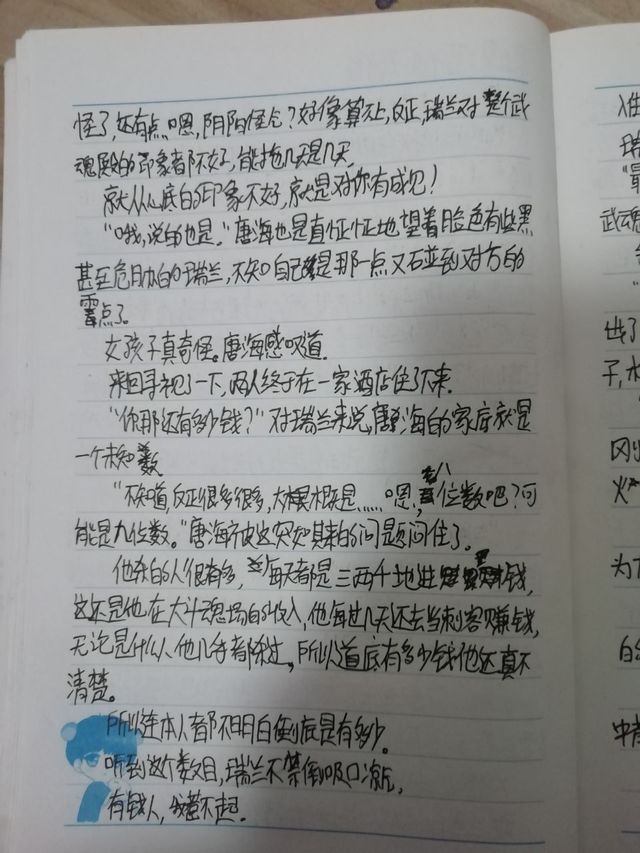 怪了,还有点、嗯,阴阳怪气?好像算不上,反正,瑞兰对整个武
魂殿的印象都不好,能拖几天是几天,
就从心底的印象不好,就是对你有成见!
“哦,说的也是。”唐海也是直怔怔地望着脸色有些黑
甚至危月亦白的瑞兰,不知自己是那一点又碰到对方的
雷点了。
女孩子真奇怪。唐海感叹道.
来回寻视了一下,两人终于在一家酒店住了下来.
“你那还有多少钱?”对瑞兰来说,唐海的家底就是
一个未知数
“不知道,反正很多很多,大概是……嗯,有八位数吧?可
能是九位数。”唐海被这突如其来的问题问住了。
他杀的人很有多,每天都是三两千地往 赚钱,
这还是他在大斗魂场的收入,他每过几天还去当刺客赚钱,
无论是什么人他几乎都杀过,所以道底有多少钱他还真不
清楚。
所以连本人都不明白到底是有多少。
听到这个数目,瑞兰不禁倒吸口凉气,
有钱人,我惹不起.
入住
瑞
“最
武魂
出了
子,
冈刂
火
为了
白
中